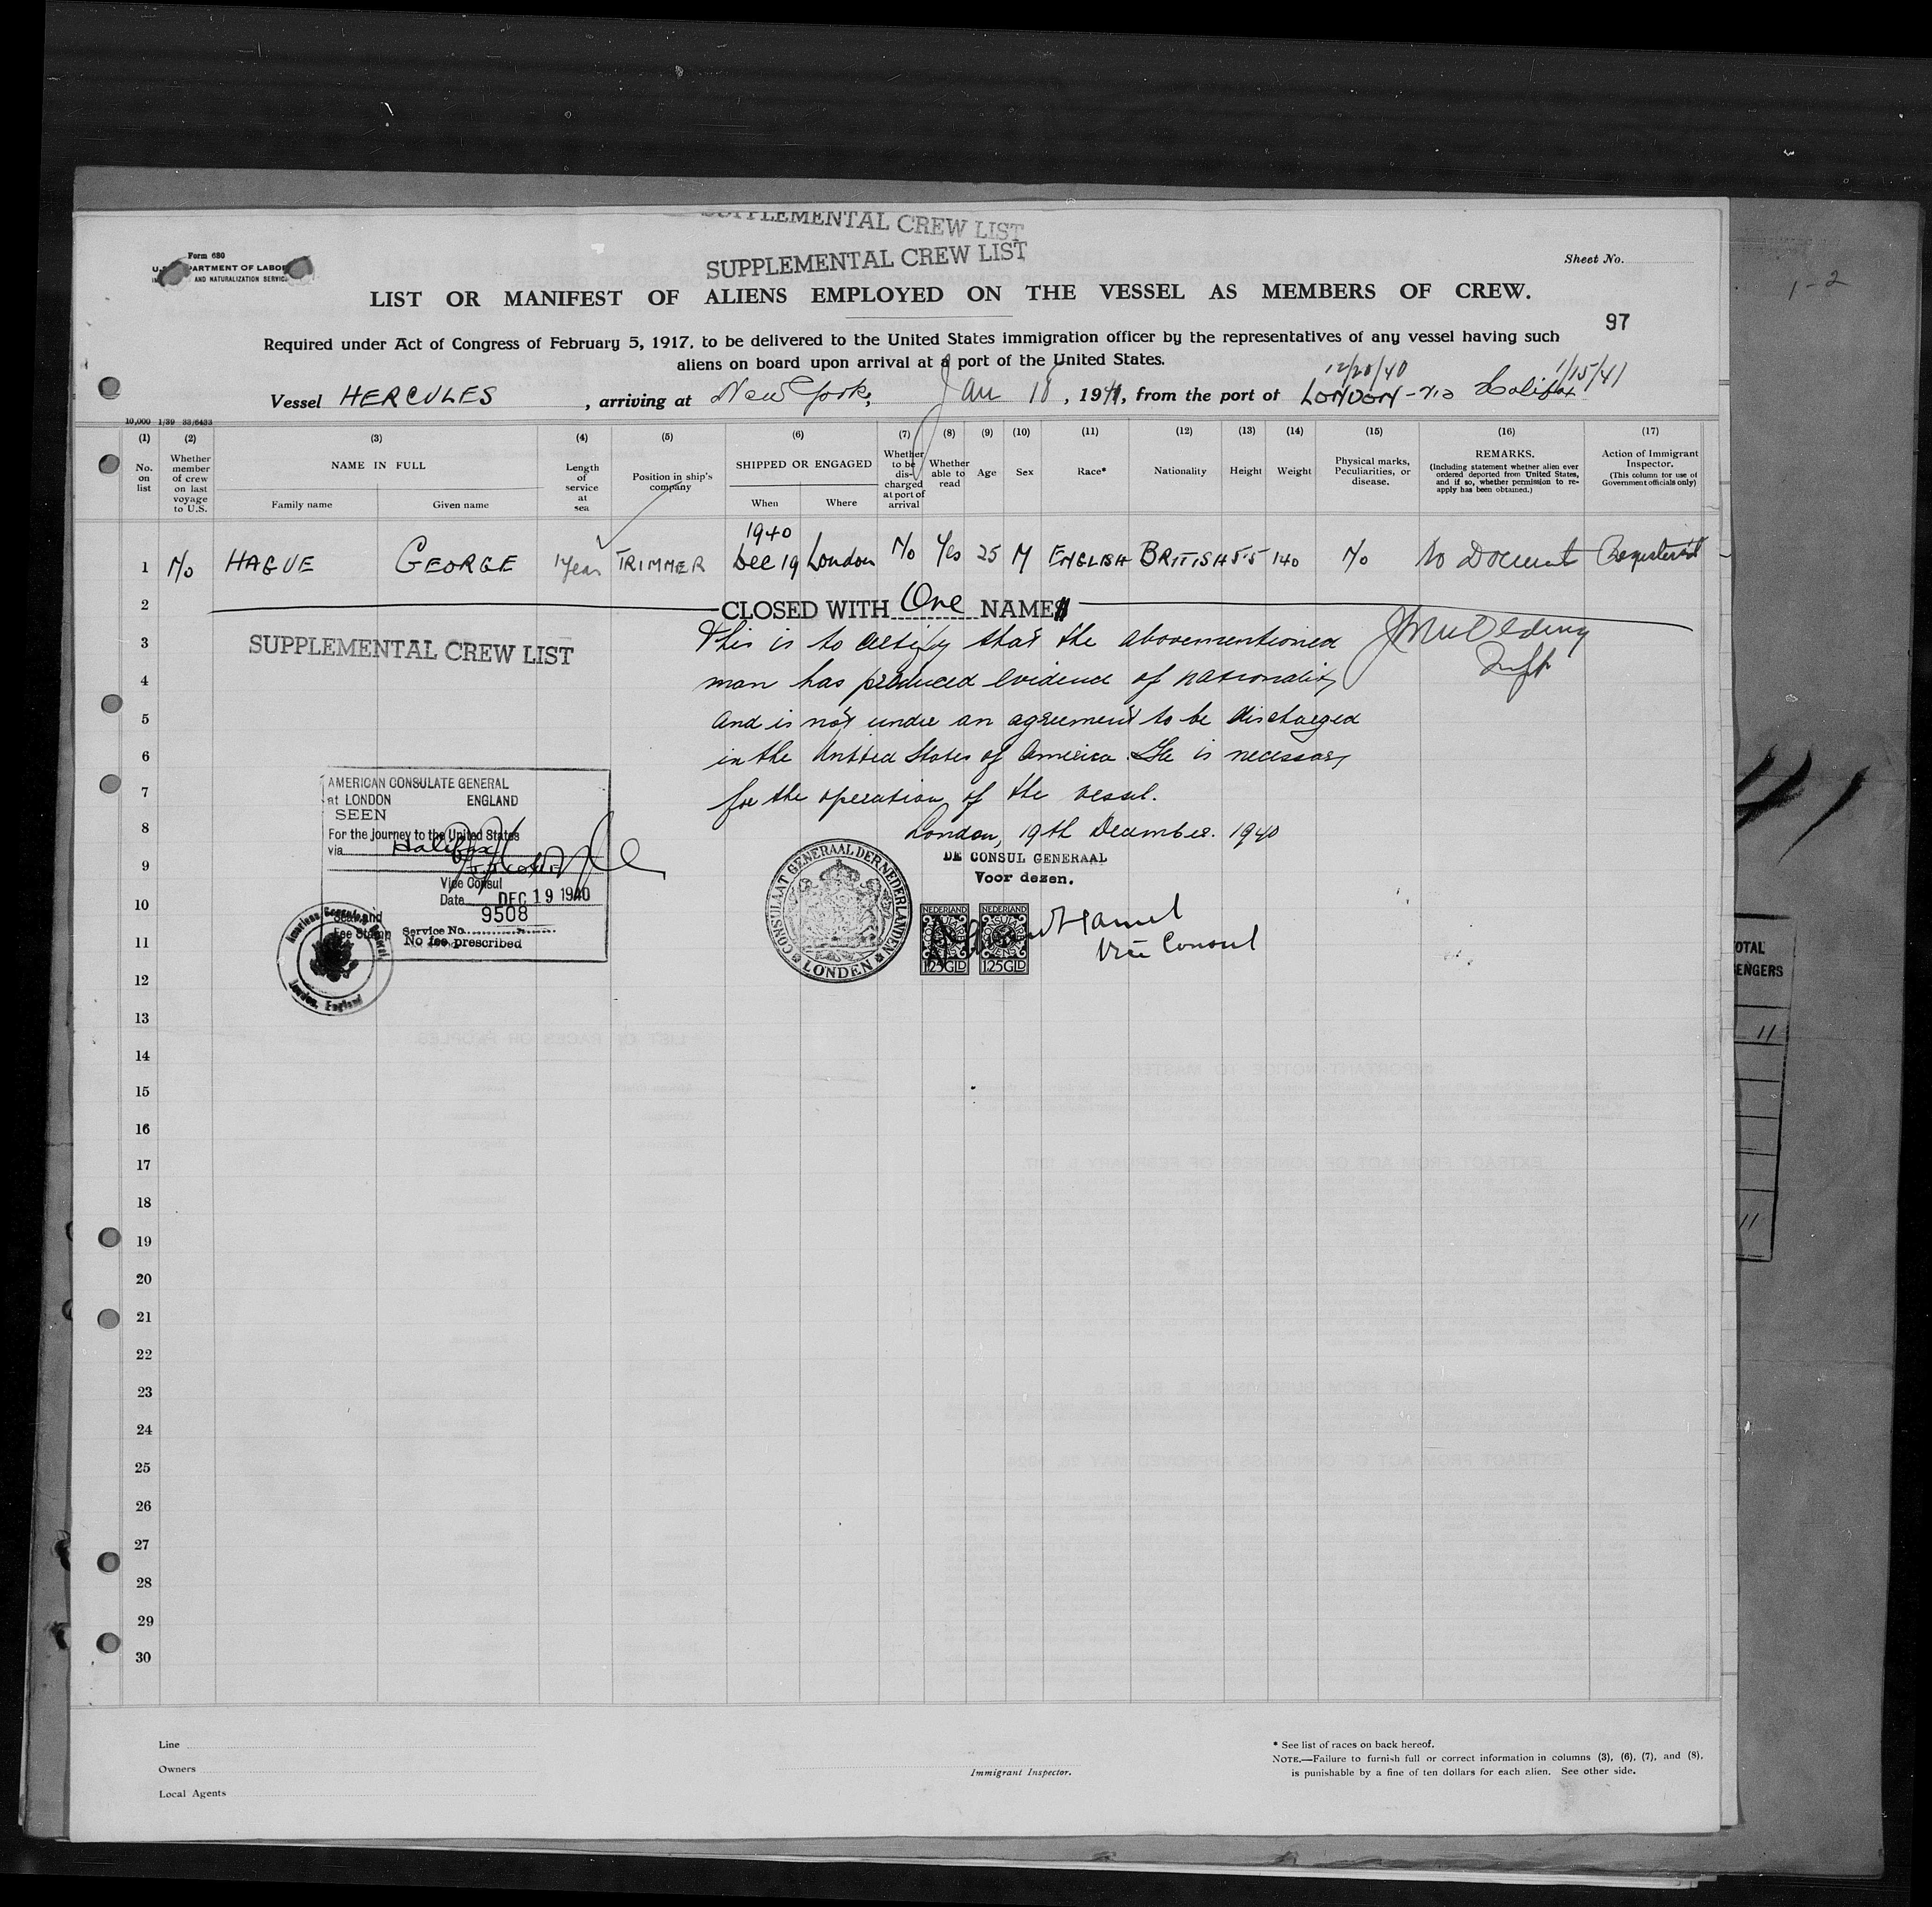 SUPPLEMENTAL CREW LIST
SUPPLEMENTAL CREW LIST
Form 680
Sheet No.
1-2
AND NATURALIZATION SERVICE
LIST OR MANIFEST OF ALIENS EMPLOYED ON THE VESSEL AS MEMBERS OF CREW.
97
Required under Act of Congress of February 5, 1917, to be delivered to the United States immigration officer by the representatives of any vessel having such
aliens on board upon arrival at a port of the United States.
12/20/40 1/15/41
Vessel HERCULES, arriving at New York, Jan 18, 1941, from the port of LONDON - via Halifax
10,000 1/39 33/6433
(1) (2) (3) (4) (5) (6) (7) (8) (9) (10) (11) (12) (13) (14) (15) (16) (17)
No. on list
Whether member of crew on last voyage to U.S.
NAME IN FULL
Family name Given name
Length of service at sea
Position in ship's company
SHIPPED OR ENGAGED
When Where
Whether to be discharged at port of arrival
Whether able to read
Age
Sex
Race*
Nationality
Height
Weight
Physical marks, Peculiarities, or disease.
REMARKS.
(Including statement whether alien ever ordered deported from United States, and if so, whether permission to reapply has been obtained.)
Action of Immigrant Inspector.
(This column for use of Government officials only)
1940
1 No HAGUE GEORGE 1 Year TRIMMER Dec 19 London No Yes 25 M ENGLISH BRITISH 5-5 140 No No Document Registered
2 CLOSED WITH One NAMES
3 This is to certify that the abovementioned
SUPPLEMENTAL CREW LIST
4 man has produced evidence of nationality
5 and is not under an agreement to be discharged
6 in the United States of America. He is necessary
7 for the operation of the vessel.
8 London, 19th December. 1940
AMERICAN CONSULATE GENERAL
at LONDON ENGLAND
SEEN
For the journey to the United States
via Halifax
Vice Consul
Date DEC 19 1940
9508
Seal and
Fee Stamp
Service No.
No fee prescribed
American Consulate General
London, England
DE CONSUL GENERAAL
Voor dezen.
CONSULAAT GENERAAL DER NEDERLANDEN
LONDEN
NEDERLAND
1.25 GLD
NEDERLAND
1.25 GLD
Vice Consul
9
10
11
12
13
14
15
16
17
18
19
20
21
22
23
24
25
26
27
28
29
30
11
11
Line
Owners
Local Agents
Immigrant Inspector.
* See list of races on back hereof.
NOTE.—Failure to furnish full or correct information in columns (3), (6), (7), and (8),
is punishable by a fine of ten dollars for each alien. See other side.